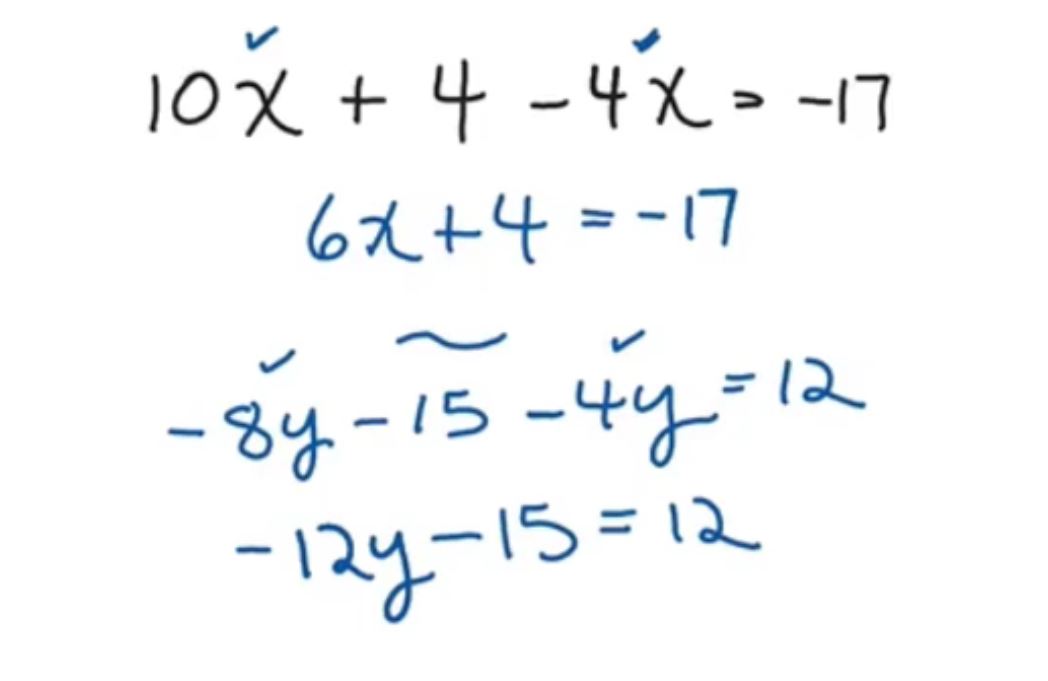 10x + 4 - 4x = -17
6x + 4 = -17
-8y - 15 - 4y = 12
-12y - 15 = 12